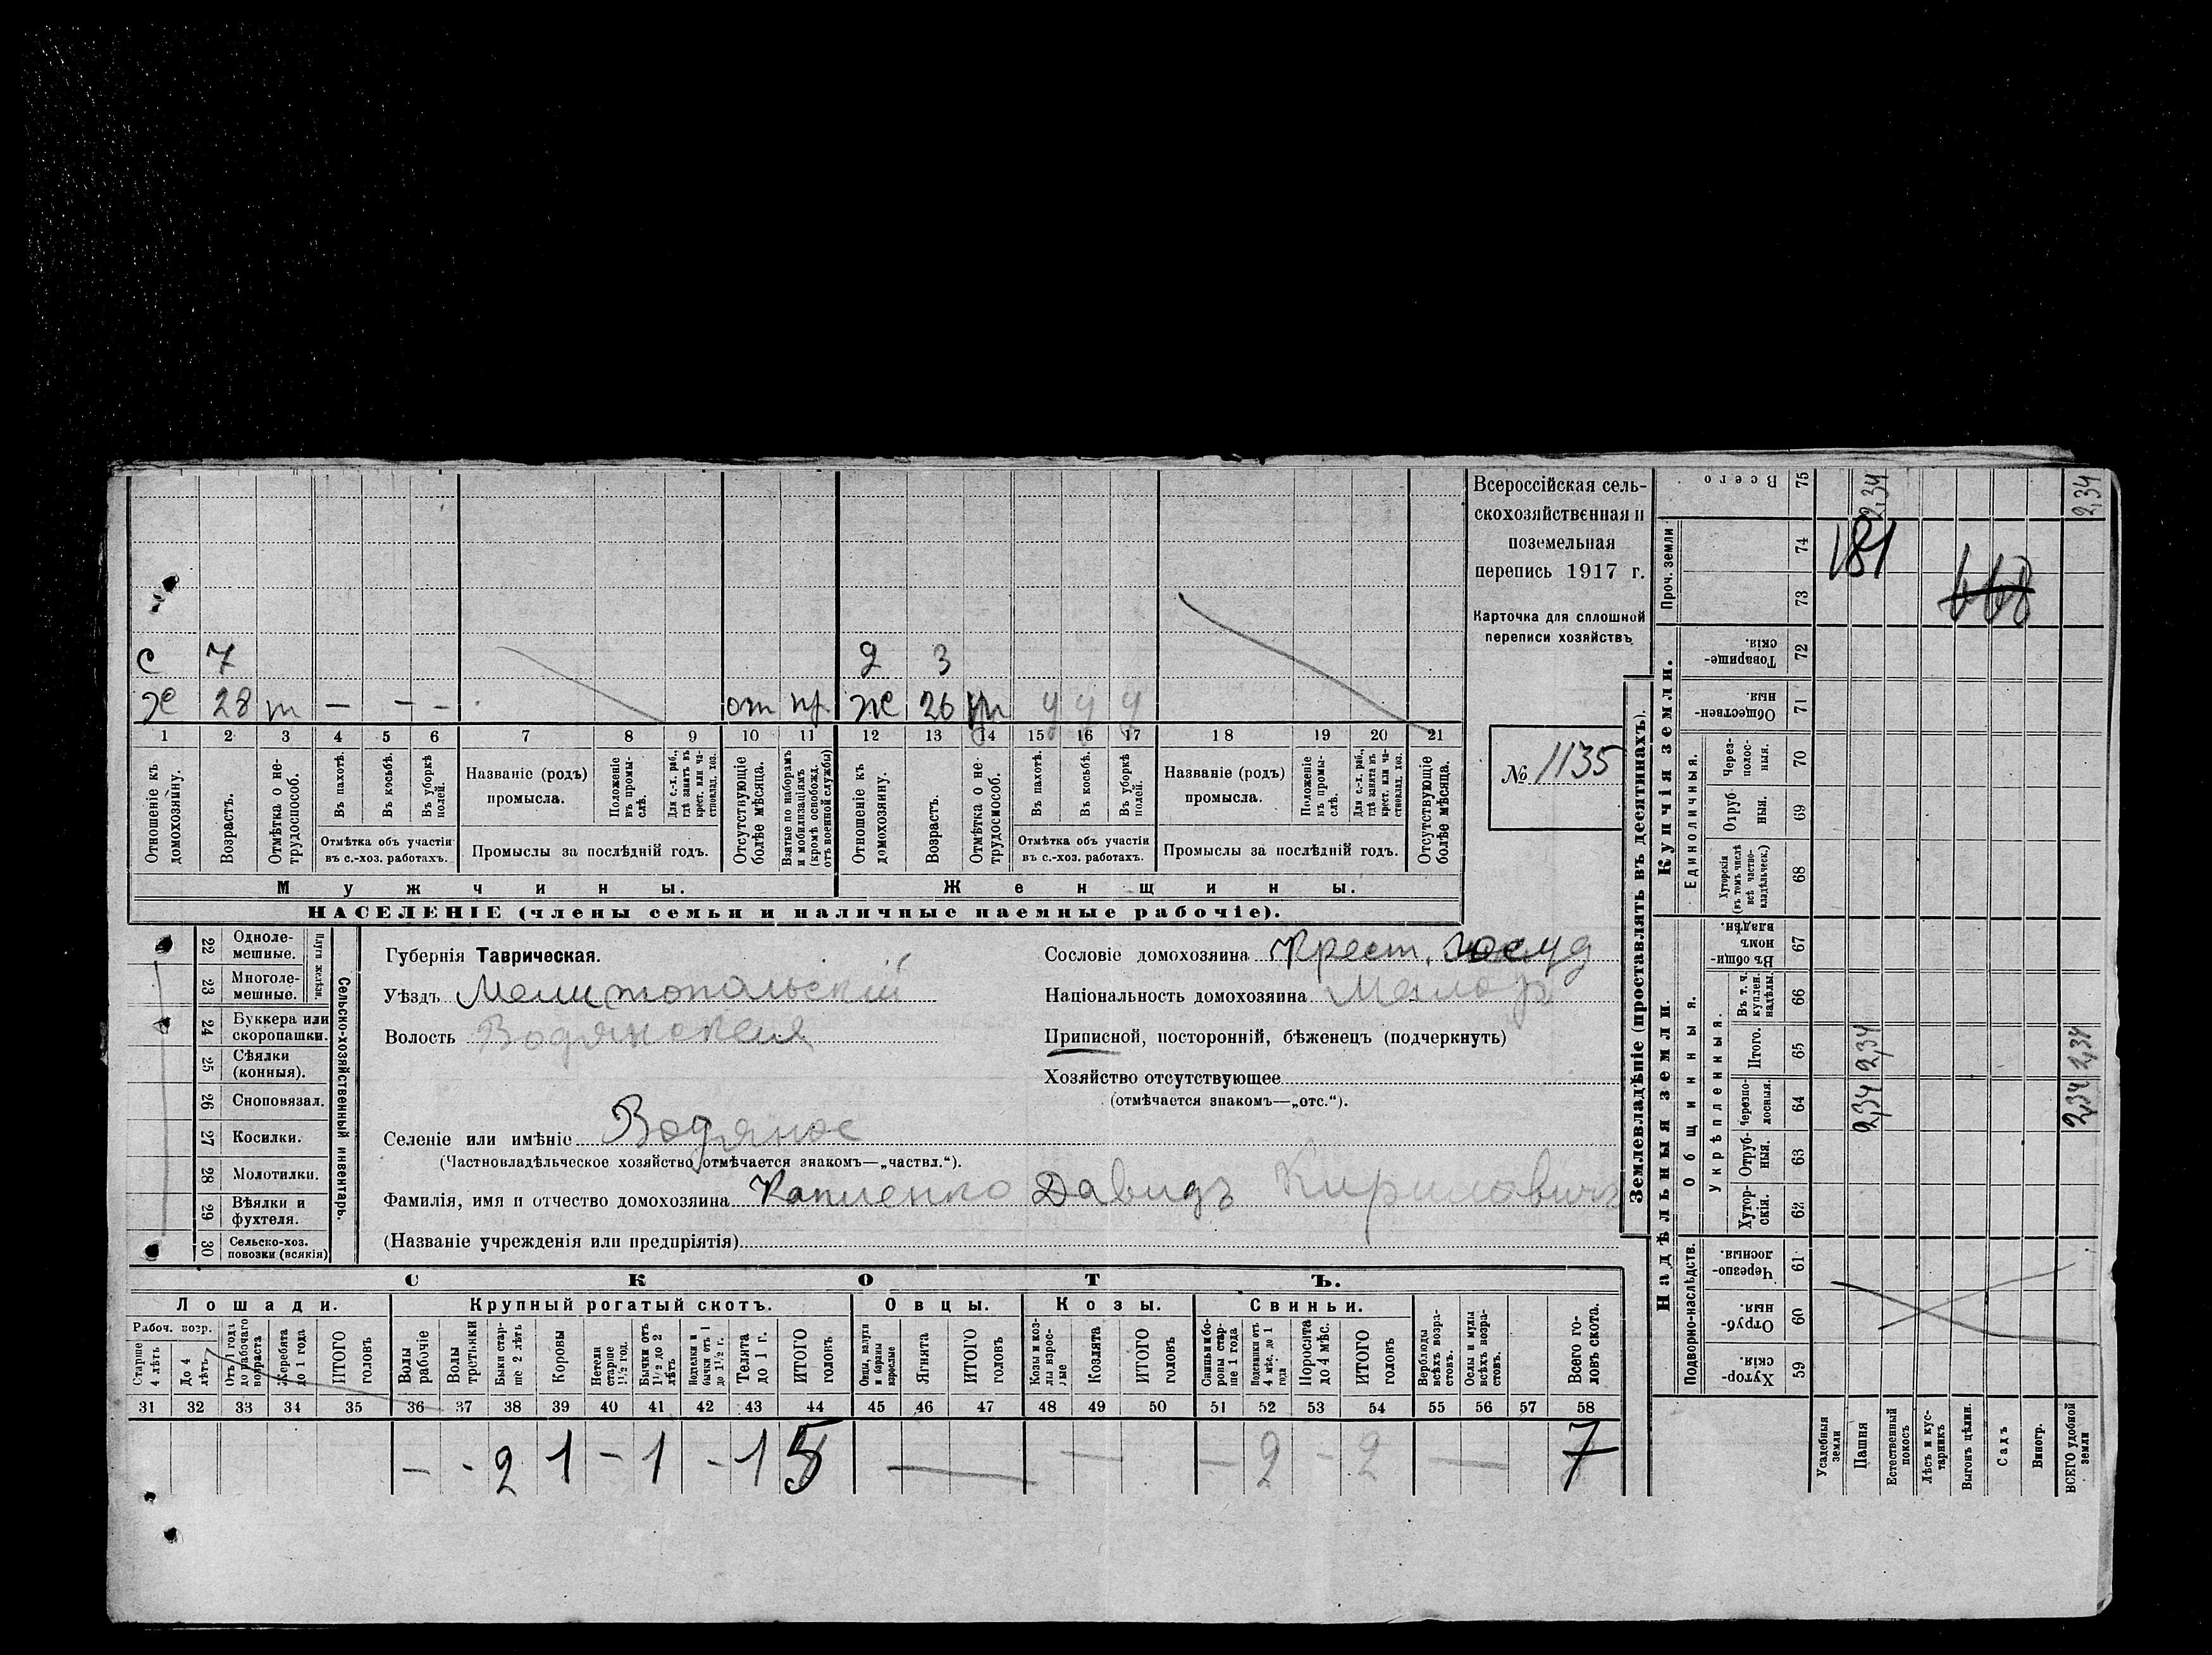 Всероссійская сель-
скохозяйственная и
поземельная
перепись 1917 г.
Карточка для сплошной
переписи хозяйствъ
№ 1135
с 7 д 3
ж 28 т — — — от пр ж 26 т у у у
1 2 3 4 5 6 7 8 9 10 11 12 13 14 15 16 17 18 19 20 21
Отношеніе къ домохозяину.
Возрастъ.
Отмѣтка о не-трудоспособ.
Въ пахотѣ.
Въ косьбѣ.
Въ уборкѣ полей.
Отмѣтка объ участіи
въ с.-хоз. работахъ.
Названіе (родъ)
промысла.
Положеніе въ промы-слѣ.
Для с.-х. раб., гдѣ занятъ въ крест. или ча-стновлад. хоз.
Промыслы за послѣдній годъ.
Отсутствующіе болѣе мѣсяца.
Взятые по наборамъ и мобилизаціямъ (кромѣ освобожд. отъ военной службы)
Отношеніе къ домохозяину.
Возрастъ.
Отмѣтка о не-трудоспособ.
Въ пахотѣ.
Въ косьбѣ.
Въ уборкѣ полей.
Отмѣтка объ участіи
въ с.-хоз. работахъ.
Названіе (родъ)
промысла.
Положеніе въ промы-слѣ.
Для с.-х. раб., гдѣ занята въ крест. или ча-стновлад. хоз.
Промыслы за послѣдній годъ.
Отсутствующіе болѣе мѣсяца.
Мужчины.
Женщины.
НАСЕЛЕНІЕ (члены семьи и наличные наемные рабочіе).
22 Однолемешные.
23 Многолемешные.
Плуги желѣзн.
24 Буккера или скоропашки.
25 Сѣялки (конныя).
26 Сноповязал.
27 Косилки.
28 Молотилки.
29 Вѣялки и фухтеля.
30 Сельско-хоз. повозки (всякія)
Сельско-хозяйственный инвентарь.
Губернія Таврическая.
Уѣздъ Мелитопольскій
Волость Водянская
Селеніе или имѣніе Водяное
(Частновладѣльческое хозяйство отмѣчается знакомъ—„частвл.“).
Фамилія, имя и отчество домохозяина Капленко Давидъ Кириловичъ
(Названіе учрежденія или предпріятія)
Сословіе домохозяина Крест. госуд
Національность домохозяина Малор.
Приписной, посторонній, бѣженецъ (подчеркнуть)
Хозяйство отсутствующее
(отмѣчается знакомъ—„отс.“).
СКОТЪ.
Лошади. Крупный рогатый скотъ. Овцы. Козы. Свиньи.
Рабоч. возр.
Старше 4 лѣтъ
До 4 лѣтъ
Отъ 1 года до рабочаго возраста
Жеребята до 1 года
ИТОГО головъ
Волы рабочіе
Волы третьяки
Быки стар-ше 2 лѣтъ
Коровы
Нетели старше 1½ год.
Бычки отъ 1½ до 2 лѣтъ
Подтелки и бычки отъ 1 до 1½ г.
Телята до 1 г.
ИТОГО головъ
Овцы, валухи и бараны взрослые
Ягнята
ИТОГО головъ
Козы и коз-лы взрос-лые
Козлята
ИТОГО головъ
Свиньи и бо-ровы стар-ше 1 года
Подсвинки отъ 4 мѣс. до 1 года
Поросята до 4 мѣс.
ИТОГО головъ
Верблюды всѣхъ возра-стовъ.
Ослы и мулы всѣхъ возра-стовъ.
Всего го-ловъ скота.
31 32 33 34 35 36 37 38 39 40 41 42 43 44 45 46 47 48 49 50 51 52 53 54 55 56 57 58
— - 2 1 — 1 - 1 5 — — — 2 - 2 — 7
Землевладѣніе (проставлять въ десятинахъ).
Надѣльныя земли.
Купчія земли.
Проч. земли
Подворно-наслѣдств.
Общинныя.
Укрѣпленныя.
Единоличныя.
Хутор-скія. 59
Отруб-ныя. 60
Черезпо-лосныя. 61
Хутор-скія. 62
Отруб-ныя. 63
Черезпо-лосныя. 64
Итого. 65
Въ т. ч. куплен. надѣлы. 66
Въ общи-номъ владѣн. 67
Хуторскія (въ томъ числѣ всѣ частно-владѣльческ.) 68
Отруб-ныя. 69
Через-полос-ныя. 70
Обществен-ныя. 71
Товарище-скія. 72
73
74
Всего 75
Усадебныя земли
Пашня 2,34 2,34 2,34
Естественный покосъ
Лѣсъ и кус-тарникъ
Выгонъ цѣлин.
Садъ
Виногр.
ВСЕГО удобной земли 2,34 2,34 2,34
181